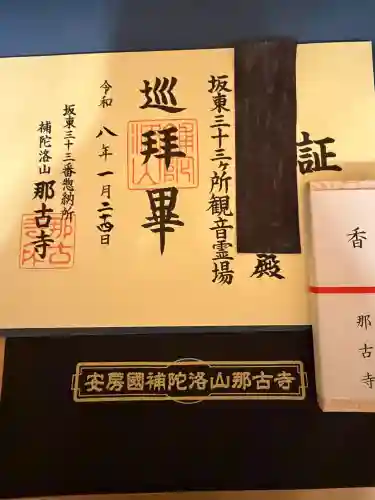 証
殿
坂東三十三ヶ所観音霊場
巡拜畢
令和八年一月二十四日
坂東三十三番惣納所
補陀洛山那古寺
香
那古寺
安房國補陀洛山那古寺